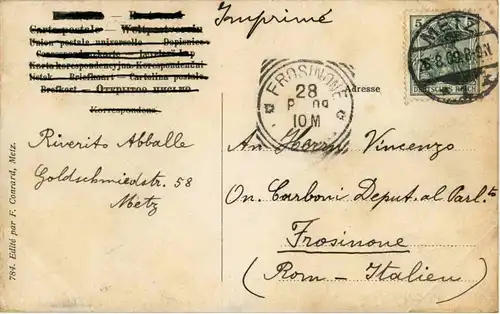 Imprimé
Cartepostale — Weltpostverein
Union postale universelle Dopisnice
Karta korespondencyjna Korespondenční
lístek — Brefkaart — Cartolina postale
Brefkort — ОТКРЫТОЕ ПИСЬМО
Korrespondens
5
METZ
26.8.09.8-9N
DEUTSCHES REICH
FROSINONE
28
09
10M
Adresse
Riverito Abballe
Goldschmiedstr. 58
Metz
An Herrn Vincenzo
On. Carboni Deput. al Parl.to
Frosinone
(Rom - Italien)
784. Edité par F. Conrard, Metz.